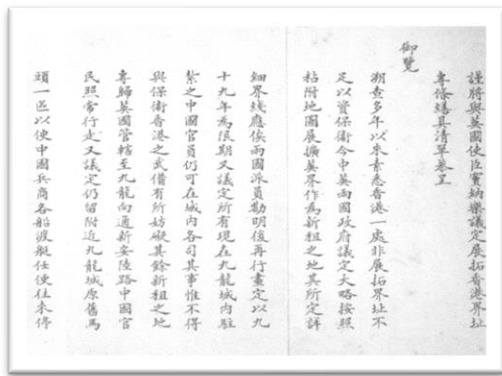 謹將與英國使臣竇納樂議定展拓香港界址
專條繕具清單恭呈
御覽
溯查多年以來素悉香港一處非展拓界址不
足以資保衛今中英兩國政府議定大略按照
粘附地圖展擴英界作為新租之地其所定詳
細界綫應俟兩國派員勘明後再行畫定以九
十九年為限期又議定所有現在九龍城內駐
紮之中國官員仍可在城內各司其事惟不得
與保衛香港之武備有所妨礙其餘新租之地
專歸英國管轄至九龍向通新安陸路中國官
民照常行走又議定仍留附近九龍城原舊馬
頭一區以便中國兵商各船渡艇任便往來停